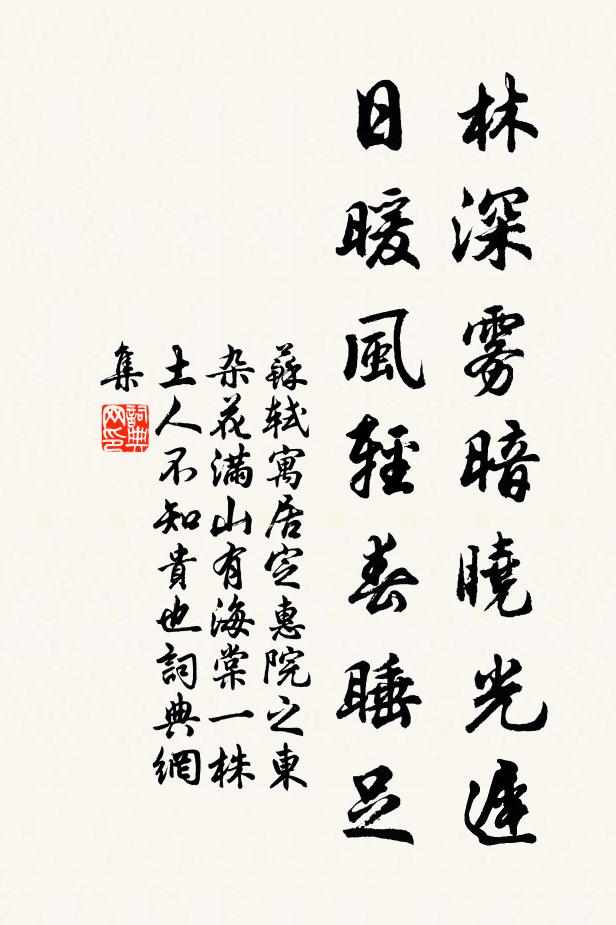 林深雾暗曉光遲
日暖風輕春睡足
蘇軾寓居定惠院之東
杂花滿山有海棠一株
土人不知貴也詞典網
集
詞典
网印